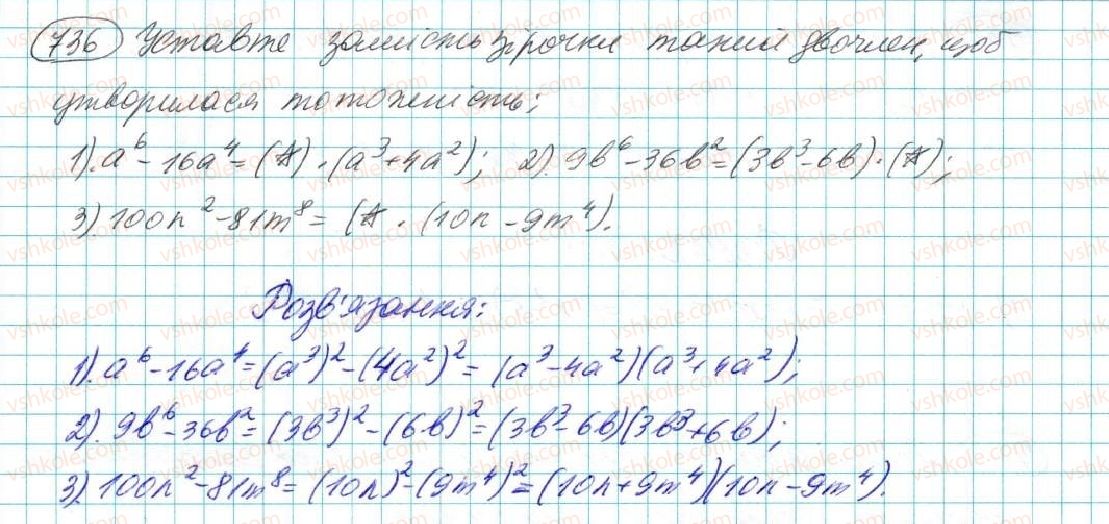 736 Уставте замість зірочки такий двочлен, щоб
утворилася тотожність:
1). a⁶ - 16a⁴ = (*) · (a³ + 4a²); 2). 9b⁶ - 36b² = (3b³ - 6b) · (*);
3) 100n² - 81m⁸ = (* · (10n - 9m⁴).
Розв'язання:
1). a⁶ - 16a⁴ = (a³)² - (4a²)² = (a³ - 4a²)(a³ + 4a²);
2). 9b⁶ - 36b² = (3b³)² - (6b)² = (3b³ - 6b)(3b³ + 6b);
3) 100n² - 81m⁸ = (10n)² - (9m⁴)² = (10n + 9m⁴)(10n - 9m⁴).